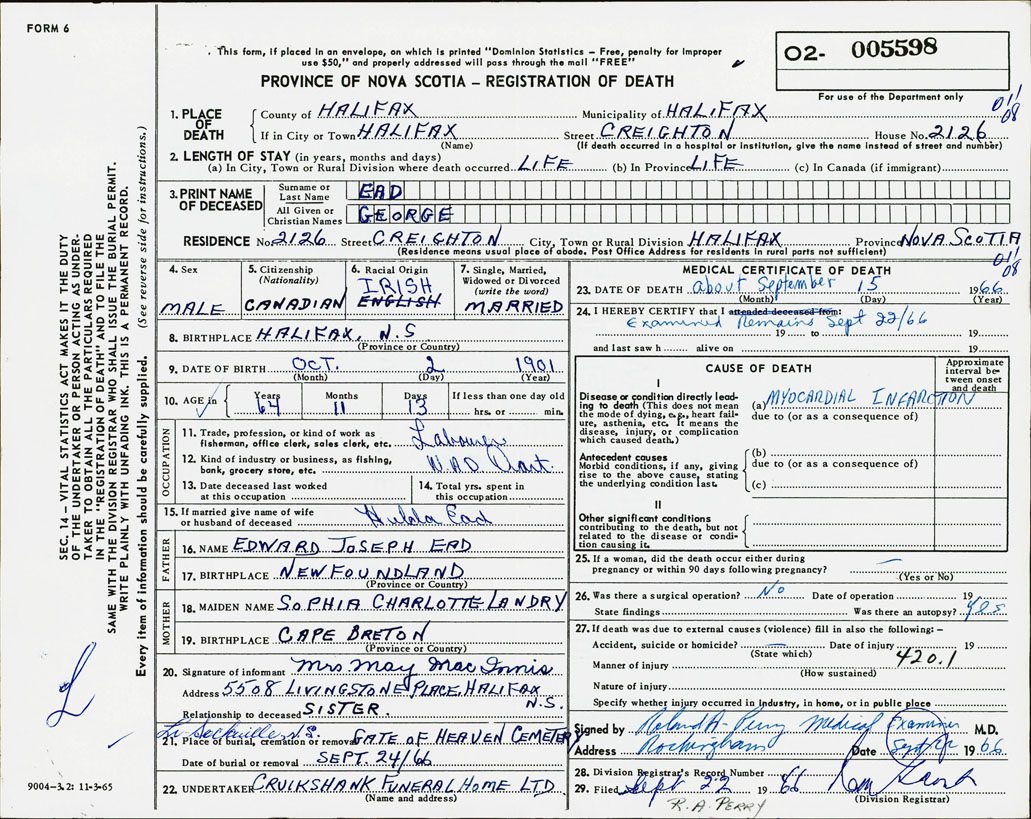 FORM 6
. This form, if placed in an envelope, on which is printed "Dominion Statistics – Free, penalty for improper
use $50," and properly addressed will pass through the mail "FREE"
PROVINCE OF NOVA SCOTIA – REGISTRATION OF DEATH
O2- 005598
For use of the Department only
011
08
1. PLACE OF DEATH
County of HALIFAX Municipality of HALIFAX
If in City or Town HALIFAX Street CREIGHTON House No. 2126
(Name) (If death occurred in a hospital or institution, give the name instead of street and number)
2. LENGTH OF STAY (in years, months and days)
(a) In City, Town or Rural Division where death occurred LIFE (b) In Province LIFE (c) In Canada (if immigrant)
3. PRINT NAME OF DECEASED
Surname or Last Name EAD
All Given or Christian Names GEORGE
RESIDENCE No. 2126 Street CREIGHTON City, Town or Rural Division HALIFAX Province NOVA SCOTIA
(Residence means usual place of abode. Post Office Address for residents in rural parts not sufficient)
011
08
4. Sex
MALE
5. Citizenship
(Nationality)
CANADIAN
6. Racial Origin
IRISH
ENGLISH
7. Single, Married,
Widowed or Divorced
(write the word)
MARRIED
8. BIRTHPLACE HALIFAX, N.S
(Province or Country)
9. DATE OF BIRTH OCT. 2 1901
(Month) (Day) (Year)
10. AGE in Years Months Days If less than one day old
64 11 13 hrs. or min.
OCCUPATION
11. Trade, profession, or kind of work as
fisherman, office clerk, sales clerk, etc. Labourer
12. Kind of industry or business, as fishing,
bank, grocery store, etc.
13. Date deceased last worked
at this occupation
14. Total yrs. spent in
this occupation
15. If married give name of wife
or husband of deceased Hulda Ead
FATHER
16. NAME EDWARD JOSEPH EAD
17. BIRTHPLACE NEWFOUNDLAND
(Province or Country)
MOTHER
18. MAIDEN NAME SOPHIA CHARLOTTE LANDRY
19. BIRTHPLACE CAPE BRETON
(Province or Country)
20. Signature of informant Mrs May Mac Innis
Address 5508 LIVINGSTONE PLACE, HALIFAX
N.S.
Relationship to deceased SISTER.
Lr Sackville N.S.
21. Place of burial, cremation or removal GATE OF HEAVEN CEMETERY
Date of burial or removal SEPT. 24/66
22. UNDERTAKER CRUIKSHANK FUNERAL HOME LTD
(Name and address)
MEDICAL CERTIFICATE OF DEATH
23. DATE OF DEATH about September 15 1966
(Month) (Day) (Year)
24. I HEREBY CERTIFY that I attended deceased from:
Examined Remains Sept 22/66
19 to 19
and last saw h alive on 19
CAUSE OF DEATH
Approximate interval between onset and death
I
Disease or condition directly leading to death (This does not mean the mode of dying, e.g., heart failure, asthenia, etc. It means the disease, injury, or complication which caused death.)
(a) MYOCARDIAL INFARCTION
due to (or as a consequence of)
Antecedent causes
Morbid conditions, if any, giving rise to the above cause, stating the underlying condition last.
(b)
due to (or as a consequence of)
(c)
II
Other significant conditions
contributing to the death, but not related to the disease or condition causing it.
25. If a woman, did the death occur either during
pregnancy or within 90 days following pregnancy? –
(Yes or No)
26. Was there a surgical operation? No Date of operation 19
State findings Was there an autopsy? Yes
27. If death was due to external causes (violence) fill in also the following: –
Accident, suicide or homicide? – Date of injury 19
(State which) 420.1
Manner of injury
(How sustained)
Nature of injury
Specify whether injury occurred in industry, in home, or in public place
Signed by Roland A. Perry Medical Examiner M.D.
Address Rockingham Date Sept 22 1966
28. Division Registrar's Record Number
29. Filed Sept 22 1966
(Division Registrar)
R. A. PERRY
SEC. 14 – VITAL STATISTICS ACT MAKES IT THE DUTY
OF THE UNDERTAKER OR PERSON ACTING AS UNDER-
TAKER TO OBTAIN ALL THE PARTICULARS REQUIRED
IN THE "REGISTRATION OF DEATH" AND TO FILE THE
SAME WITH THE DIVISION REGISTRAR WHO SHALL ISSUE THE BURIAL PERMIT.
WRITE PLAINLY WITH UNFADING INK. THIS IS A PERMANENT RECORD.
Every item of information should be carefully supplied. (See reverse side for instructions.)
9004-3.2: 11-3-65